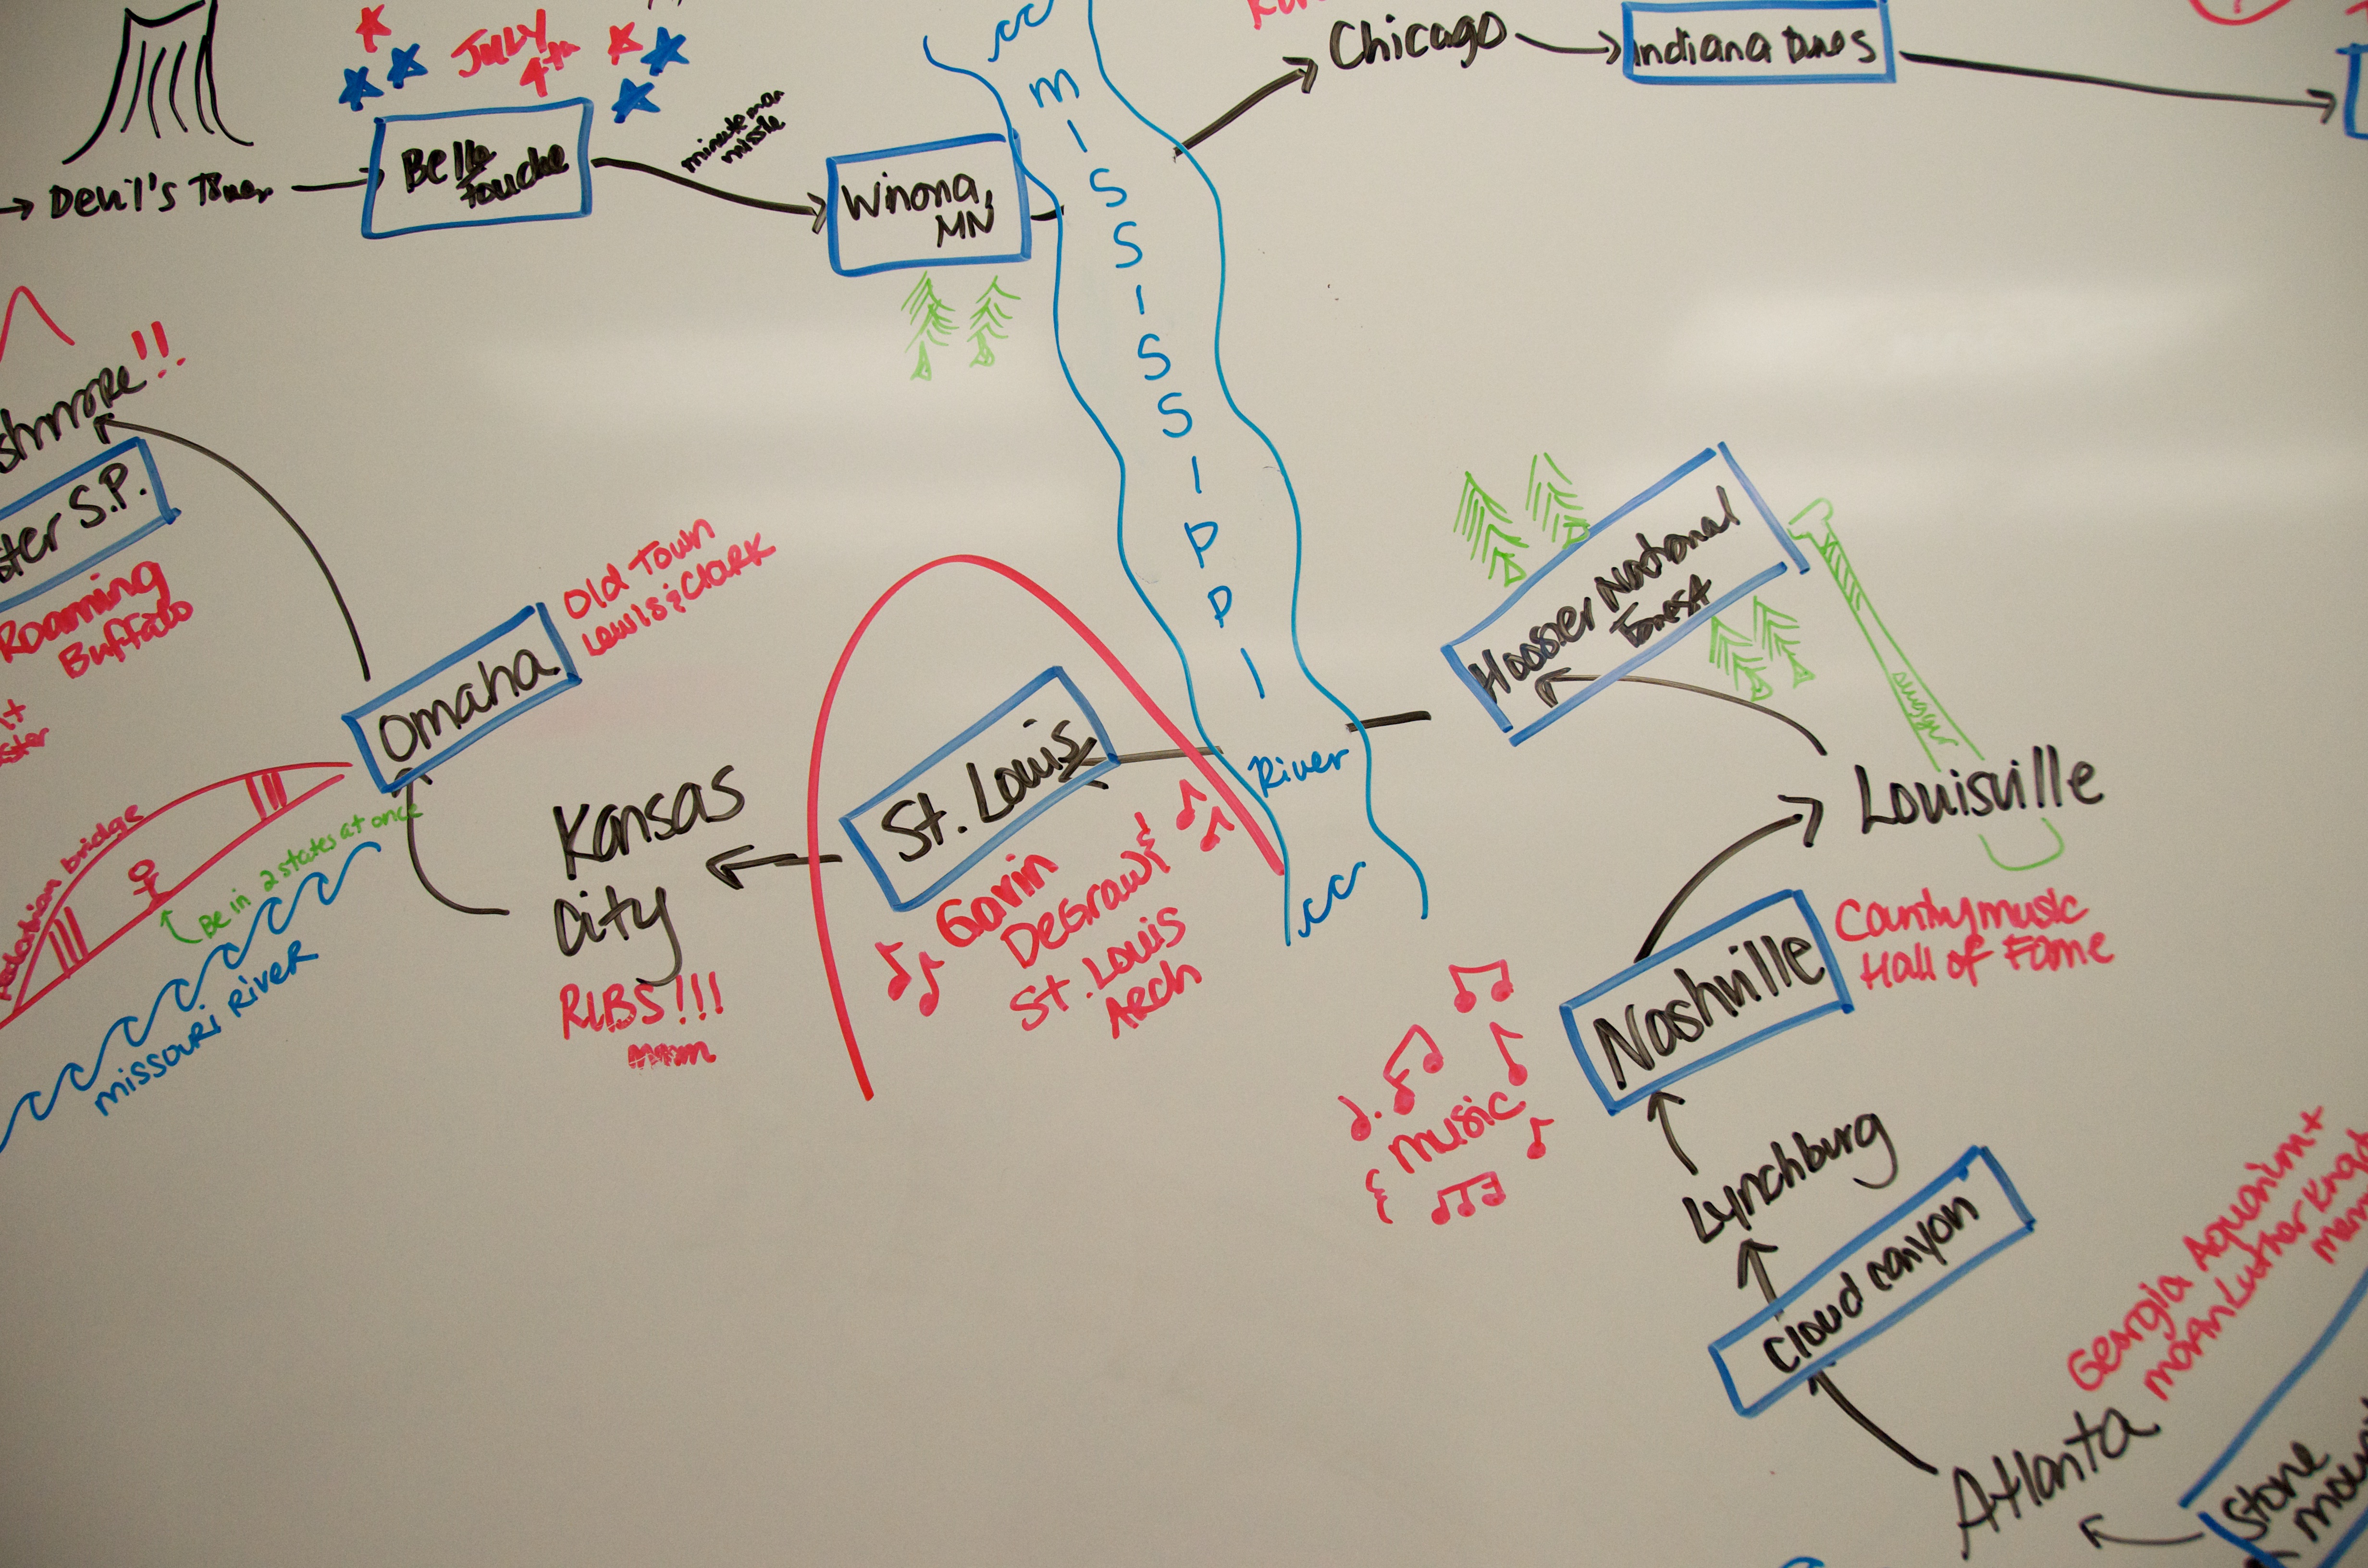 JULY
4th
Chicago
Indiana Dunes
minuteman
missile
Devil's Tower
Belle
Fouche
Winona,
MN
MISSISSIPPI
River
!!
ster S.P.
Roaming
Buffalo
Omaha
Old Town
Lewis & Clark
pedestrian bridge
Be in 2 states at once
missouri River
Kansas
City
RIBS!!!
mmm
St. Louis
Gavin
DeGraw &
St. Louis
Arch
Hoosier National
Forest
slugger
Louisville
Nashville
Country music
Hall of Fame
music
Lynchburg
Cloud canyon
Georgia Aquarium +
Atlanta
Stone